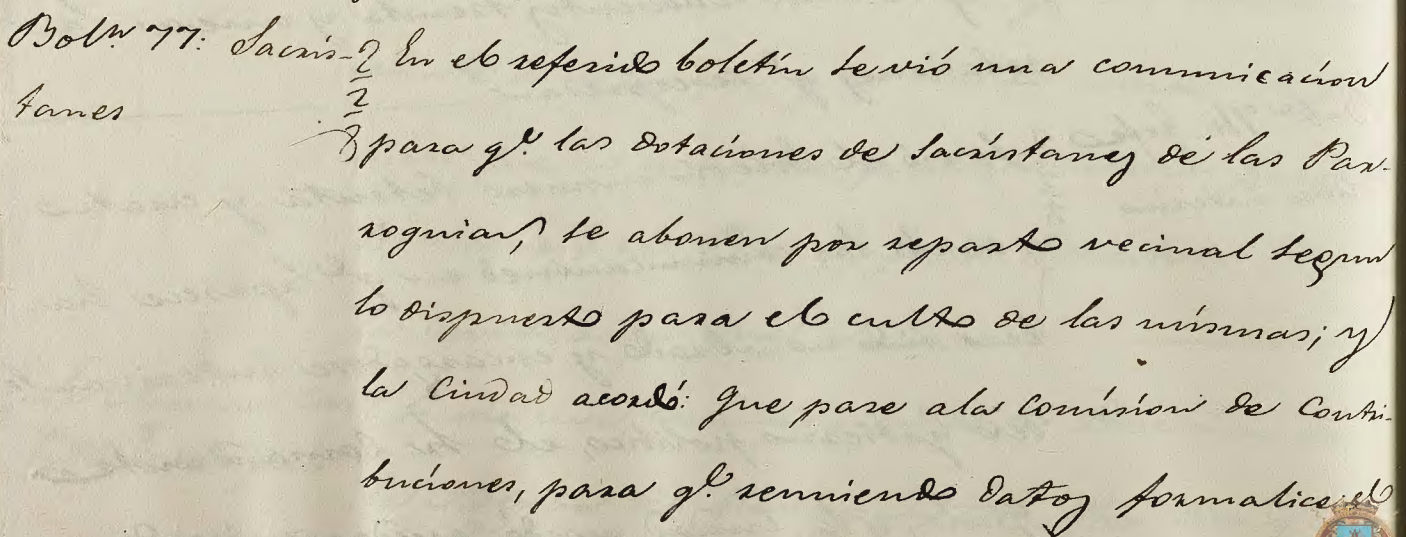 Boln. 77: Sacris-
tanes
En el referido boletín se vió una comunicacion
para qe. las dotaciones de Sacristanes de las Par-
roquias, se abonen por reparto vecinal segun
lo dispuesto para el culto de las mismas; y
la Ciudad acordó: Que pase ala Comision de Contri-
buciones, para qe. reuniendo datos formalice el